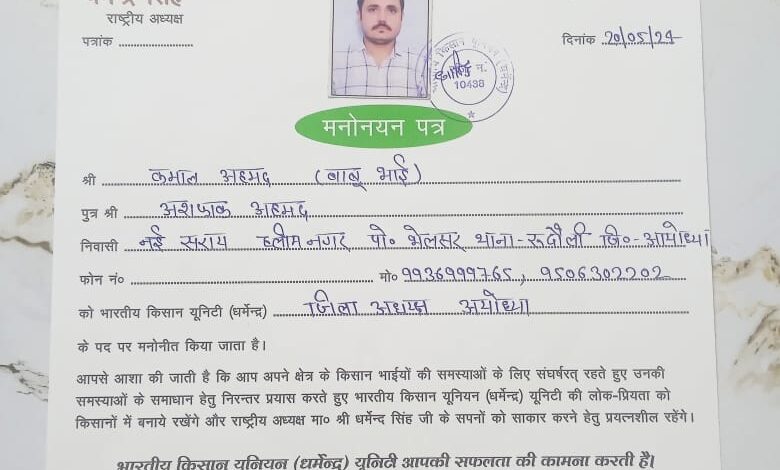 राष्ट्रीय अध्यक्ष
पत्रांक
दिनांक 20/05/24
10438
मनोनयन पत्र
श्री कमाल अहमद (बाबू भाई)
पुत्र श्री अशफाक अहमद
निवासी नई सराय हलीम नगर पो० भेलसर थाना-रूदौली जि०-अयोध्या
फोन नं० मो० 9936999765, 9506302202
को भारतीय किसान यूनिटी (धर्मेन्द्र) जिला अध्यक्ष अयोध्या
के पद पर मनोनीत किया जाता है।
आपसे आशा की जाती है कि आप अपने क्षेत्र के किसान भाईयों की समस्याओं के लिए संघर्षरत् रहते हुए उनकी
समस्याओं के समाधान हेतु निरन्तर प्रयास करते हुए भारतीय किसान यूनियन (धर्मेन्द्र) यूनिटी की लोक-प्रियता को
किसानों में बनाये रखेंगे और राष्ट्रीय अध्यक्ष मा० श्री धर्मेन्द सिंह जी के सपनों को साकार करने हेतु प्रयत्नशील रहेंगे।
भारतीय किसान यूनियन (धर्मेन्द्र) यूनिटी आपकी सफलता की कामना करती है।